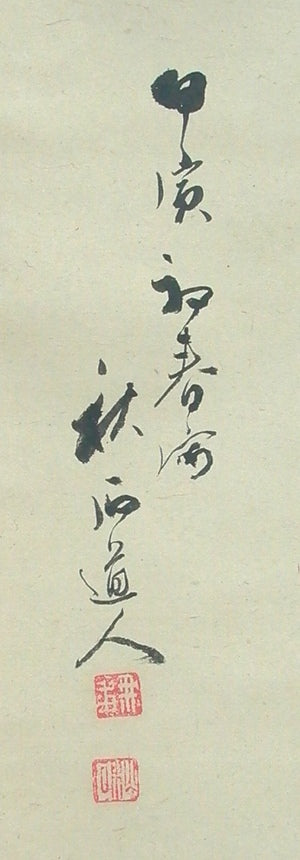 甲寅初春寫
秋石道人